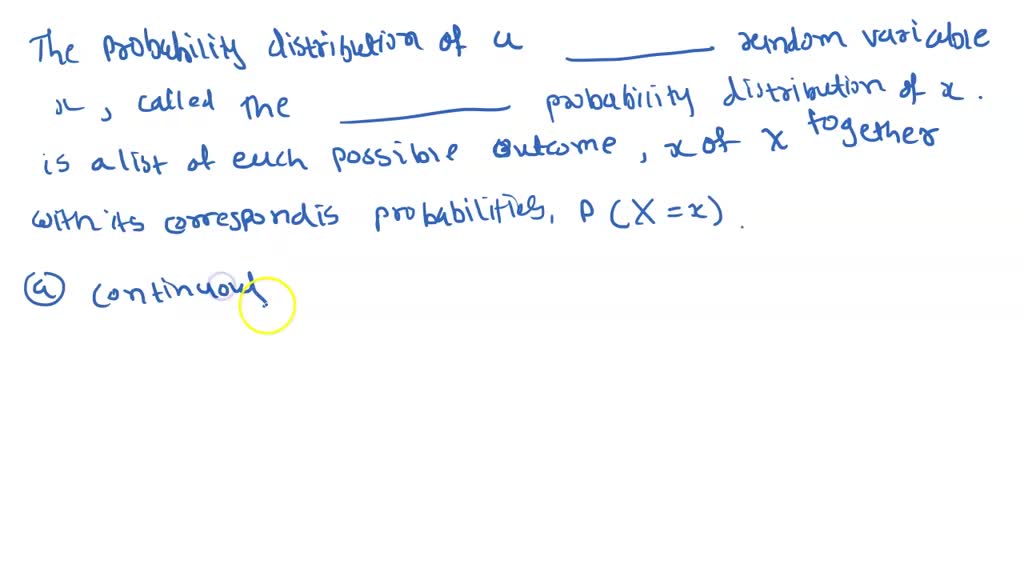 The probability distribution of a _______ random variable
x, called the _______ probability distribution of x.
is a list of each possible outcome, x of X together
with its correspondis probabilities, P (X = x).
(a) continuous